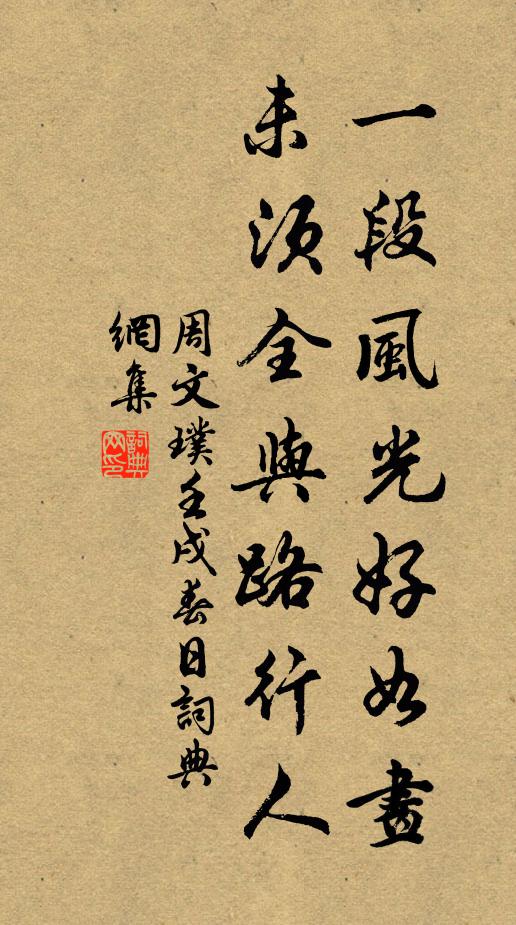 一段風光好如畫
未須全與路行人
周文璞壬戌春日詞典
網集
詞典網印